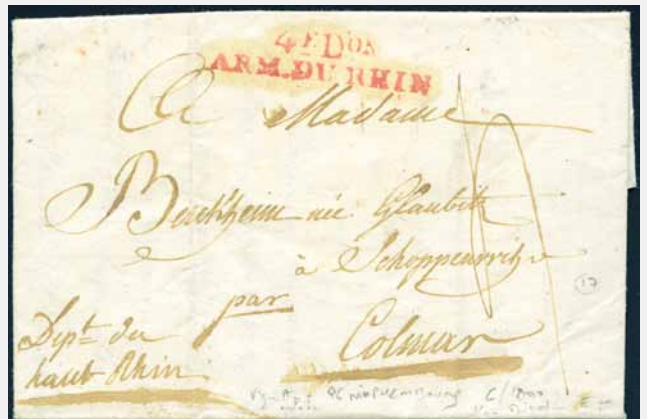 4E DON
ARM. DU RHIN
A Madame
Berckheim née Glaubitz
à Schoppenwihr
par
Colmar
Dept. du
haut Rhin
17